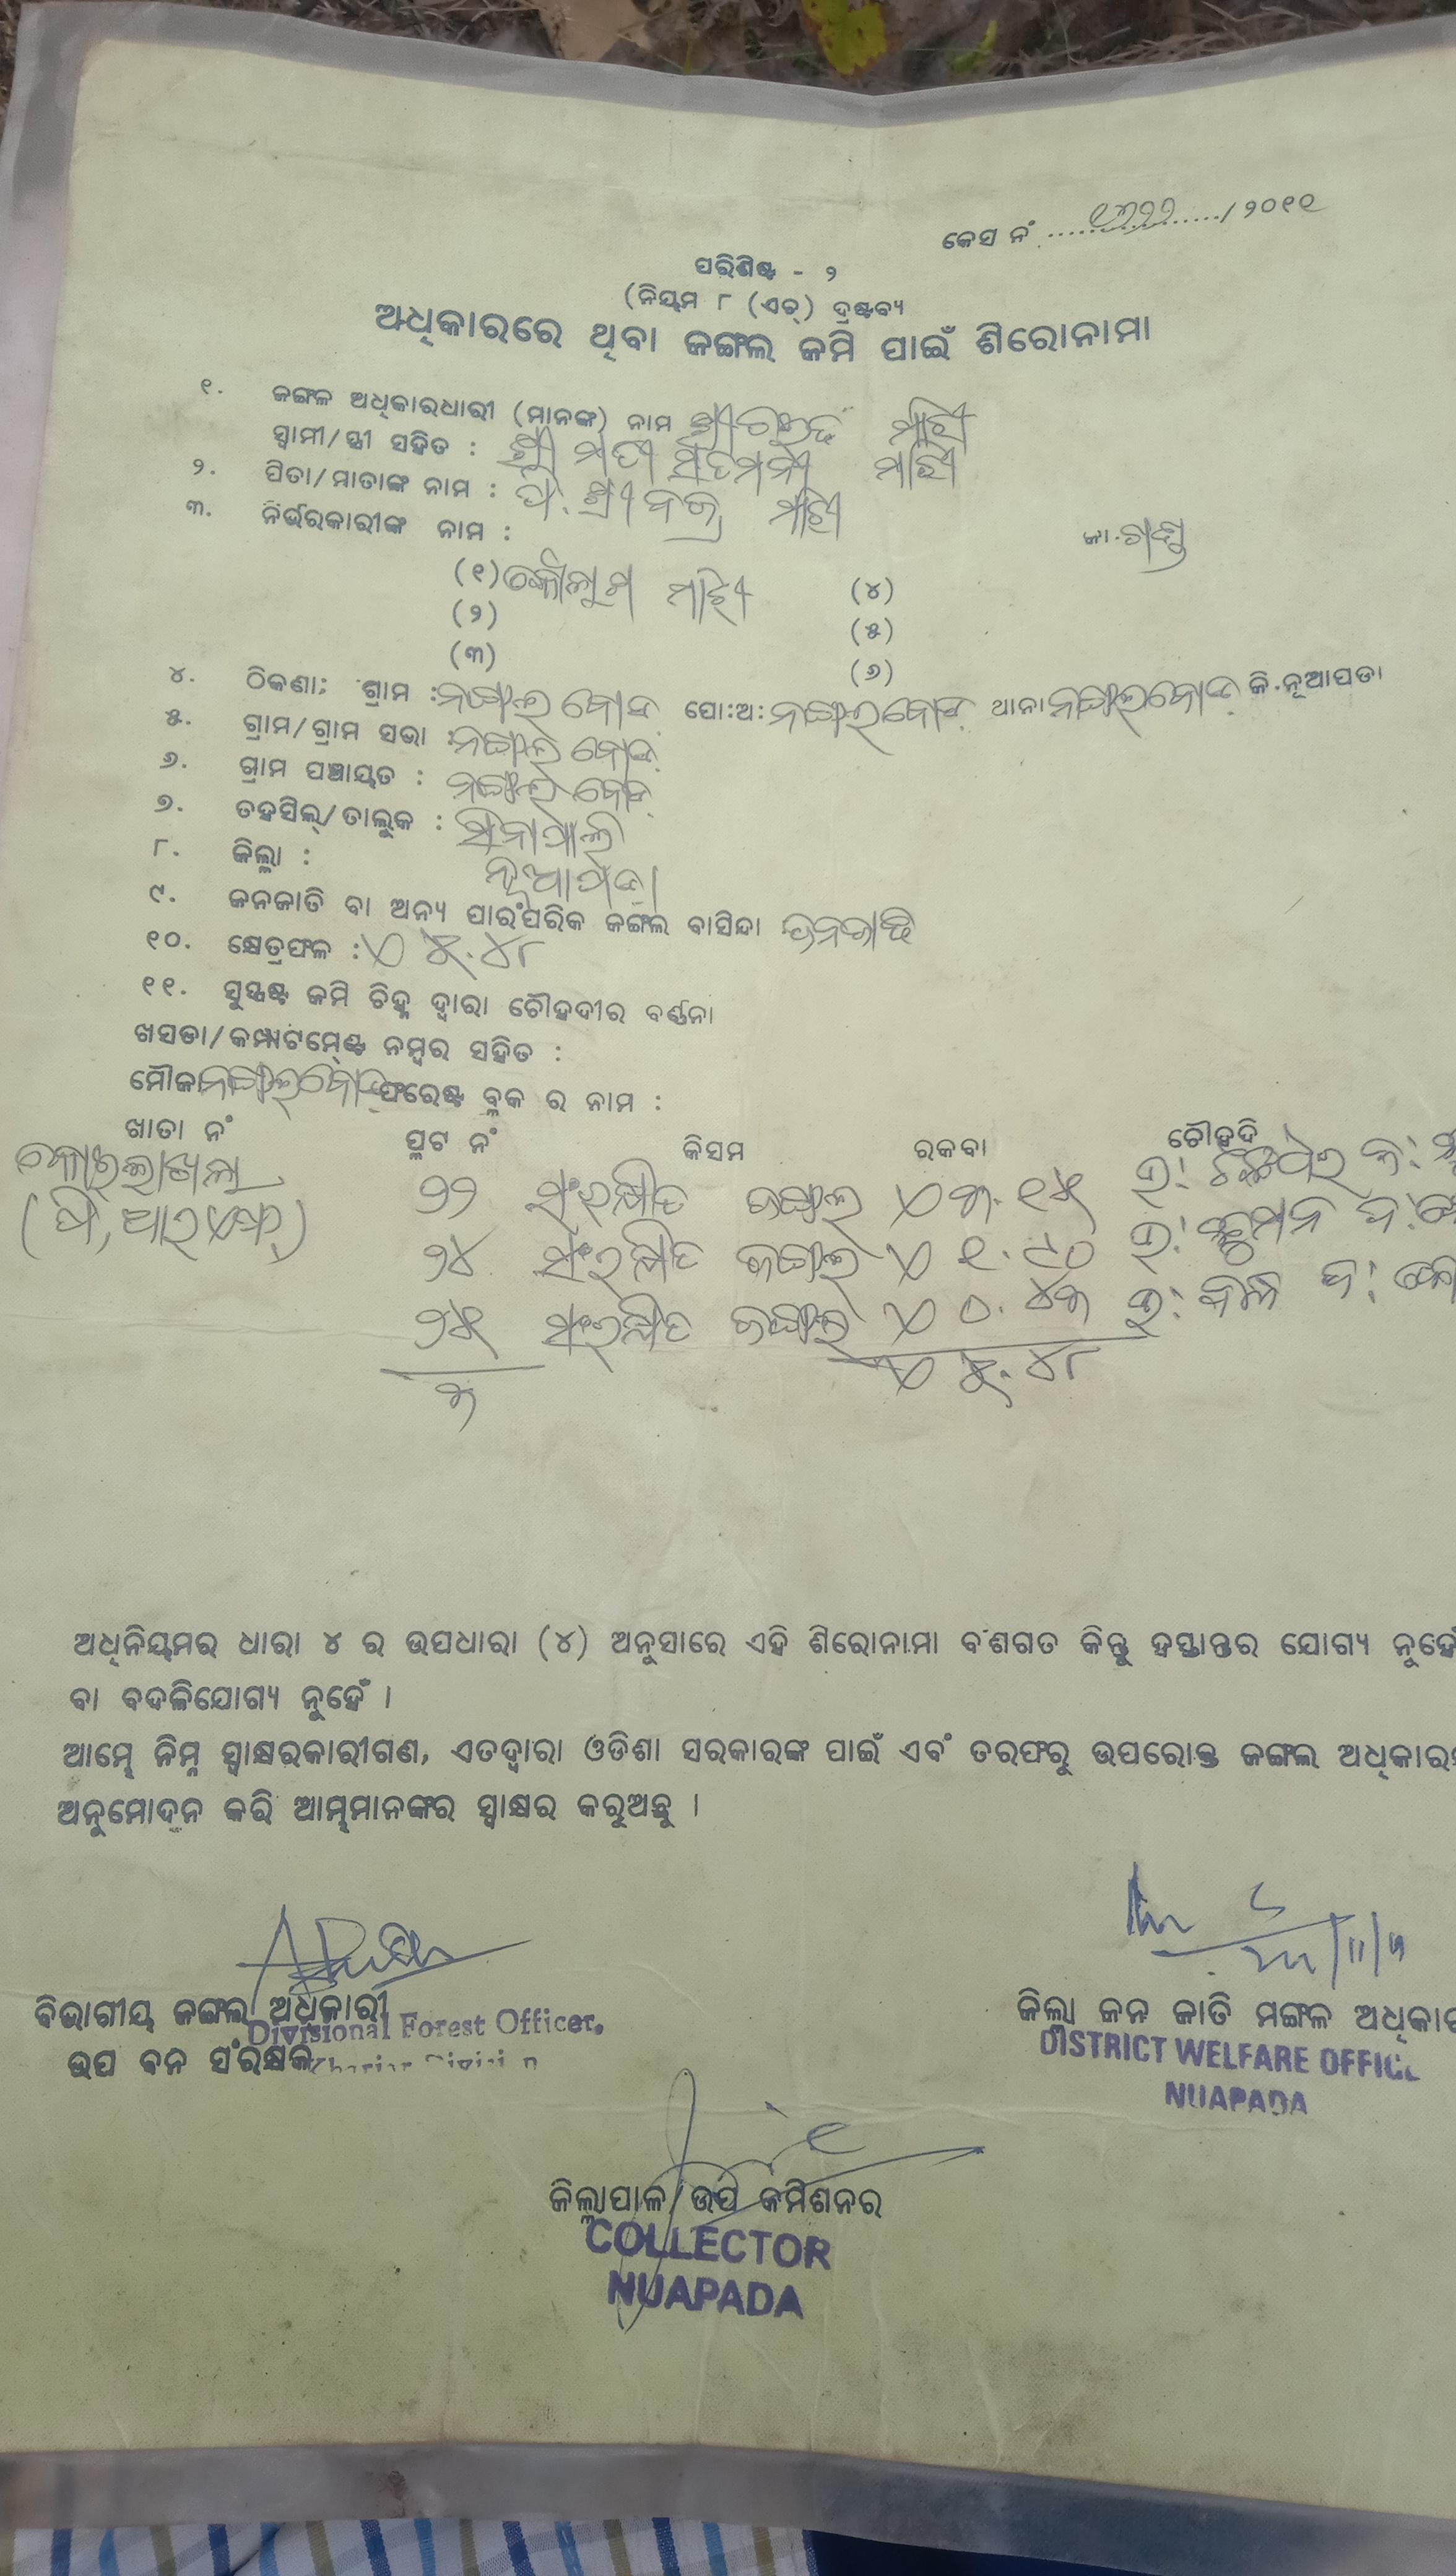 କେସ ନଂ ................/ ୨୦୧୧
ପରିଶିଷ୍ଟ - ୨
(ନିୟମ ୮ (ଏଚ୍) ଦ୍ରଷ୍ଟବ୍ୟ
ଅଧିକାରରେ ଥିବା ଜଙ୍ଗଲ ଜମି ପାଇଁ ଶିରୋନାମା
୧. ଜଙ୍ଗଳ ଅଧିକାରଧାରୀ (ମାନଙ୍କ) ନାମ ଶ୍ରୀ ମାଝି
ସ୍ୱାମୀ/ସ୍ତ୍ରୀ ସହିତ : ଶ୍ରୀ ମତୀ ମାଝି
୨. ପିତା/ମାତାଙ୍କ ନାମ : ପି. ଶ୍ରୀ ମାଝି
୩. ନିର୍ଭରକାରୀଙ୍କ ନାମ : ଜା. ଗଣ୍ଡ
(୧) ମାଝି (୪)
(୨) (୫)
(୩) (୬)
୪. ଠିକଣା: ଗ୍ରାମ : ନଙ୍ଗଲବୋଡ ପୋ:ଅ: ନଙ୍ଗଲବୋଡ ଥାନା ନଙ୍ଗଲବୋଡ ଜି.ନୂଆପଡା
୫. ଗ୍ରାମ/ଗ୍ରାମ ସଭା : ନଙ୍ଗଲବୋଡ
୬. ଗ୍ରାମ ପଞ୍ଚାୟତ : ନଙ୍ଗଲବୋଡ
୭. ତହସିଲ୍/ତାଲୁକ : ସିନାପାଲି
୮. ଜିଲ୍ଲା : ନୂଆପଡା
୯. ଜନଜାତି ବା ଅନ୍ୟ ପାରଂପରିକ ଜଙ୍ଗଲ ବାସିନ୍ଦା ଜନଜାତି
୧୦. କ୍ଷେତ୍ରଫଳ : ଏ ୫.୪୮
୧୧. ସୁସ୍ପଷ୍ଟ ଜମି ଚିହ୍ନ ଦ୍ୱାରା ଚୌହଦୀର ବର୍ଣ୍ଣନା
ଖସଡା/କମ୍ପାଟମେଣ୍ଟ ନମ୍ବର ସହିତ :
ମୌଜା ନଙ୍ଗଲବୋଡ ଫରେଷ୍ଟ ବ୍ଳକ ର ନାମ :
ଖାତା ନଂ ପ୍ଳଟ ନଂ କିସମ ରକବା ଚୌହଦି
୬୨ ସଂରକ୍ଷିତ ଜଙ୍ଗଲ ଏ ୩.୧୫ ଉ:
(ପି, ଆର ଏଫ୍) ୬୪ ସଂରକ୍ଷିତ ଜଙ୍ଗଲ ଏ ୧.୯୦ ଉ:
୬୫ ସଂରକ୍ଷିତ ଜଙ୍ଗଲ ଏ ୦.୪୩ ଉ:
୩ ଏ ୫.୪୮
ଅଧିନିୟମର ଧାରା ୪ ର ଉପଧାରା (୪) ଅନୁସାରେ ଏହି ଶିରୋନାମା ବଂଶଗତ କିନ୍ତୁ ହସ୍ତାନ୍ତର ଯୋଗ୍ୟ ନୁହେଁ
ବା ବଦଳିଯୋଗ୍ୟ ନୁହେଁ ।
ଆମ୍ଭେ ନିମ୍ନ ସ୍ୱାକ୍ଷରକାରୀଗଣ, ଏତଦ୍ୱାରା ଓଡିଶା ସରକାରଙ୍କ ପାଇଁ ଏବଂ ତରଫରୁ ଉପରୋକ୍ତ ଜଙ୍ଗଲ ଅଧିକାର
ଅନୁମୋଦନ କରି ଆମ୍ଭମାନଙ୍କର ସ୍ୱାକ୍ଷର କରୁଅଛୁ ।
ବିଭାଗୀୟ ଜଙ୍ଗଲ ଅଧିକାରୀ
Divisional Forest Officer.
ଉପ ବନ ସଂରକ୍ଷକ
Khariar Division
ଜିଲ୍ଲା ଜନ ଜାତି ମଙ୍ଗଳ ଅଧିକାର
DISTRICT WELFARE OFFICE
NUAPADA
ଜିଲ୍ଲାପାଳ/ଉପ କମିଶନର
COLLECTOR
NUAPADA